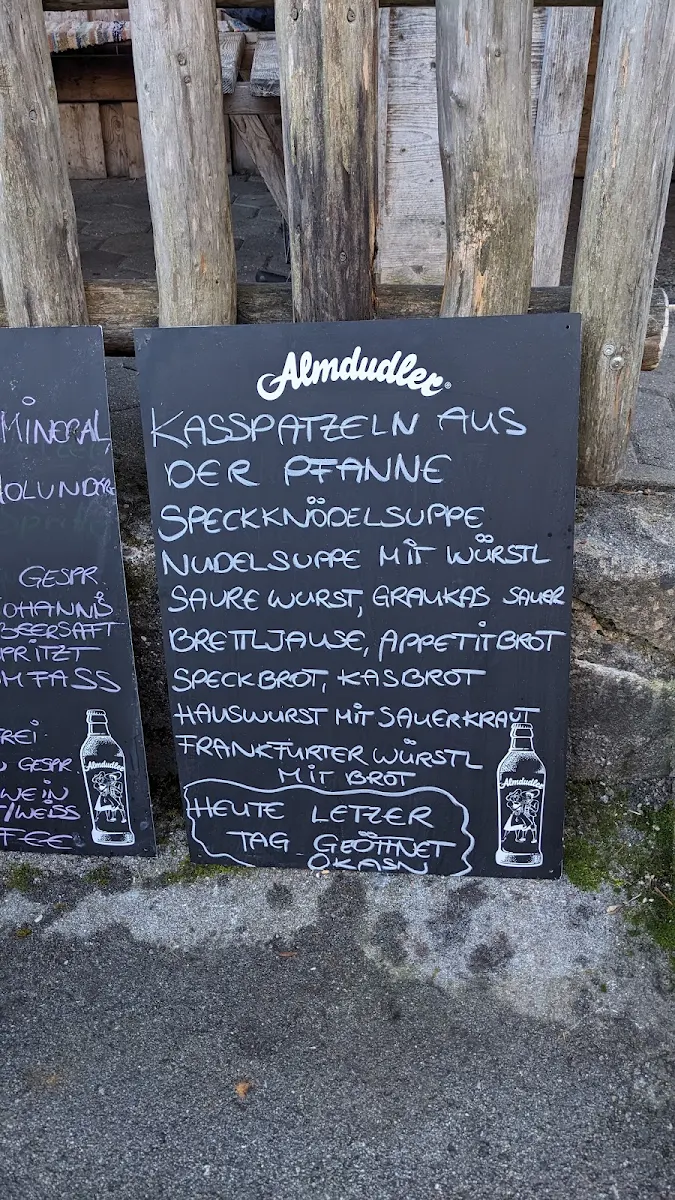 MINERAL,
HOLUNDER
GESPR.
JOHANNIS
BEERSAFT
SPRITZT
VOM FASS
FREI
GESPR
WEIN
T/WEISS
FFEE
Almdudler
Almdudler®
KASSPATZELN AUS
DER PFANNE
SPECKKNÖDELSUPPE
NUDELSUPPE MIT WÜRSTL
SAURE WURST, GRAUKAS SAUER
BRETTLJAUSE, APPETITBROT
SPECKBROT, KASBROT
HAUSWURST MIT SAUERKRAUT
FRANKFURTER WÜRSTL
MIT BROT
HEUTE LETZER
TAG GEÖFFNET
ÖKASN
Almdudler